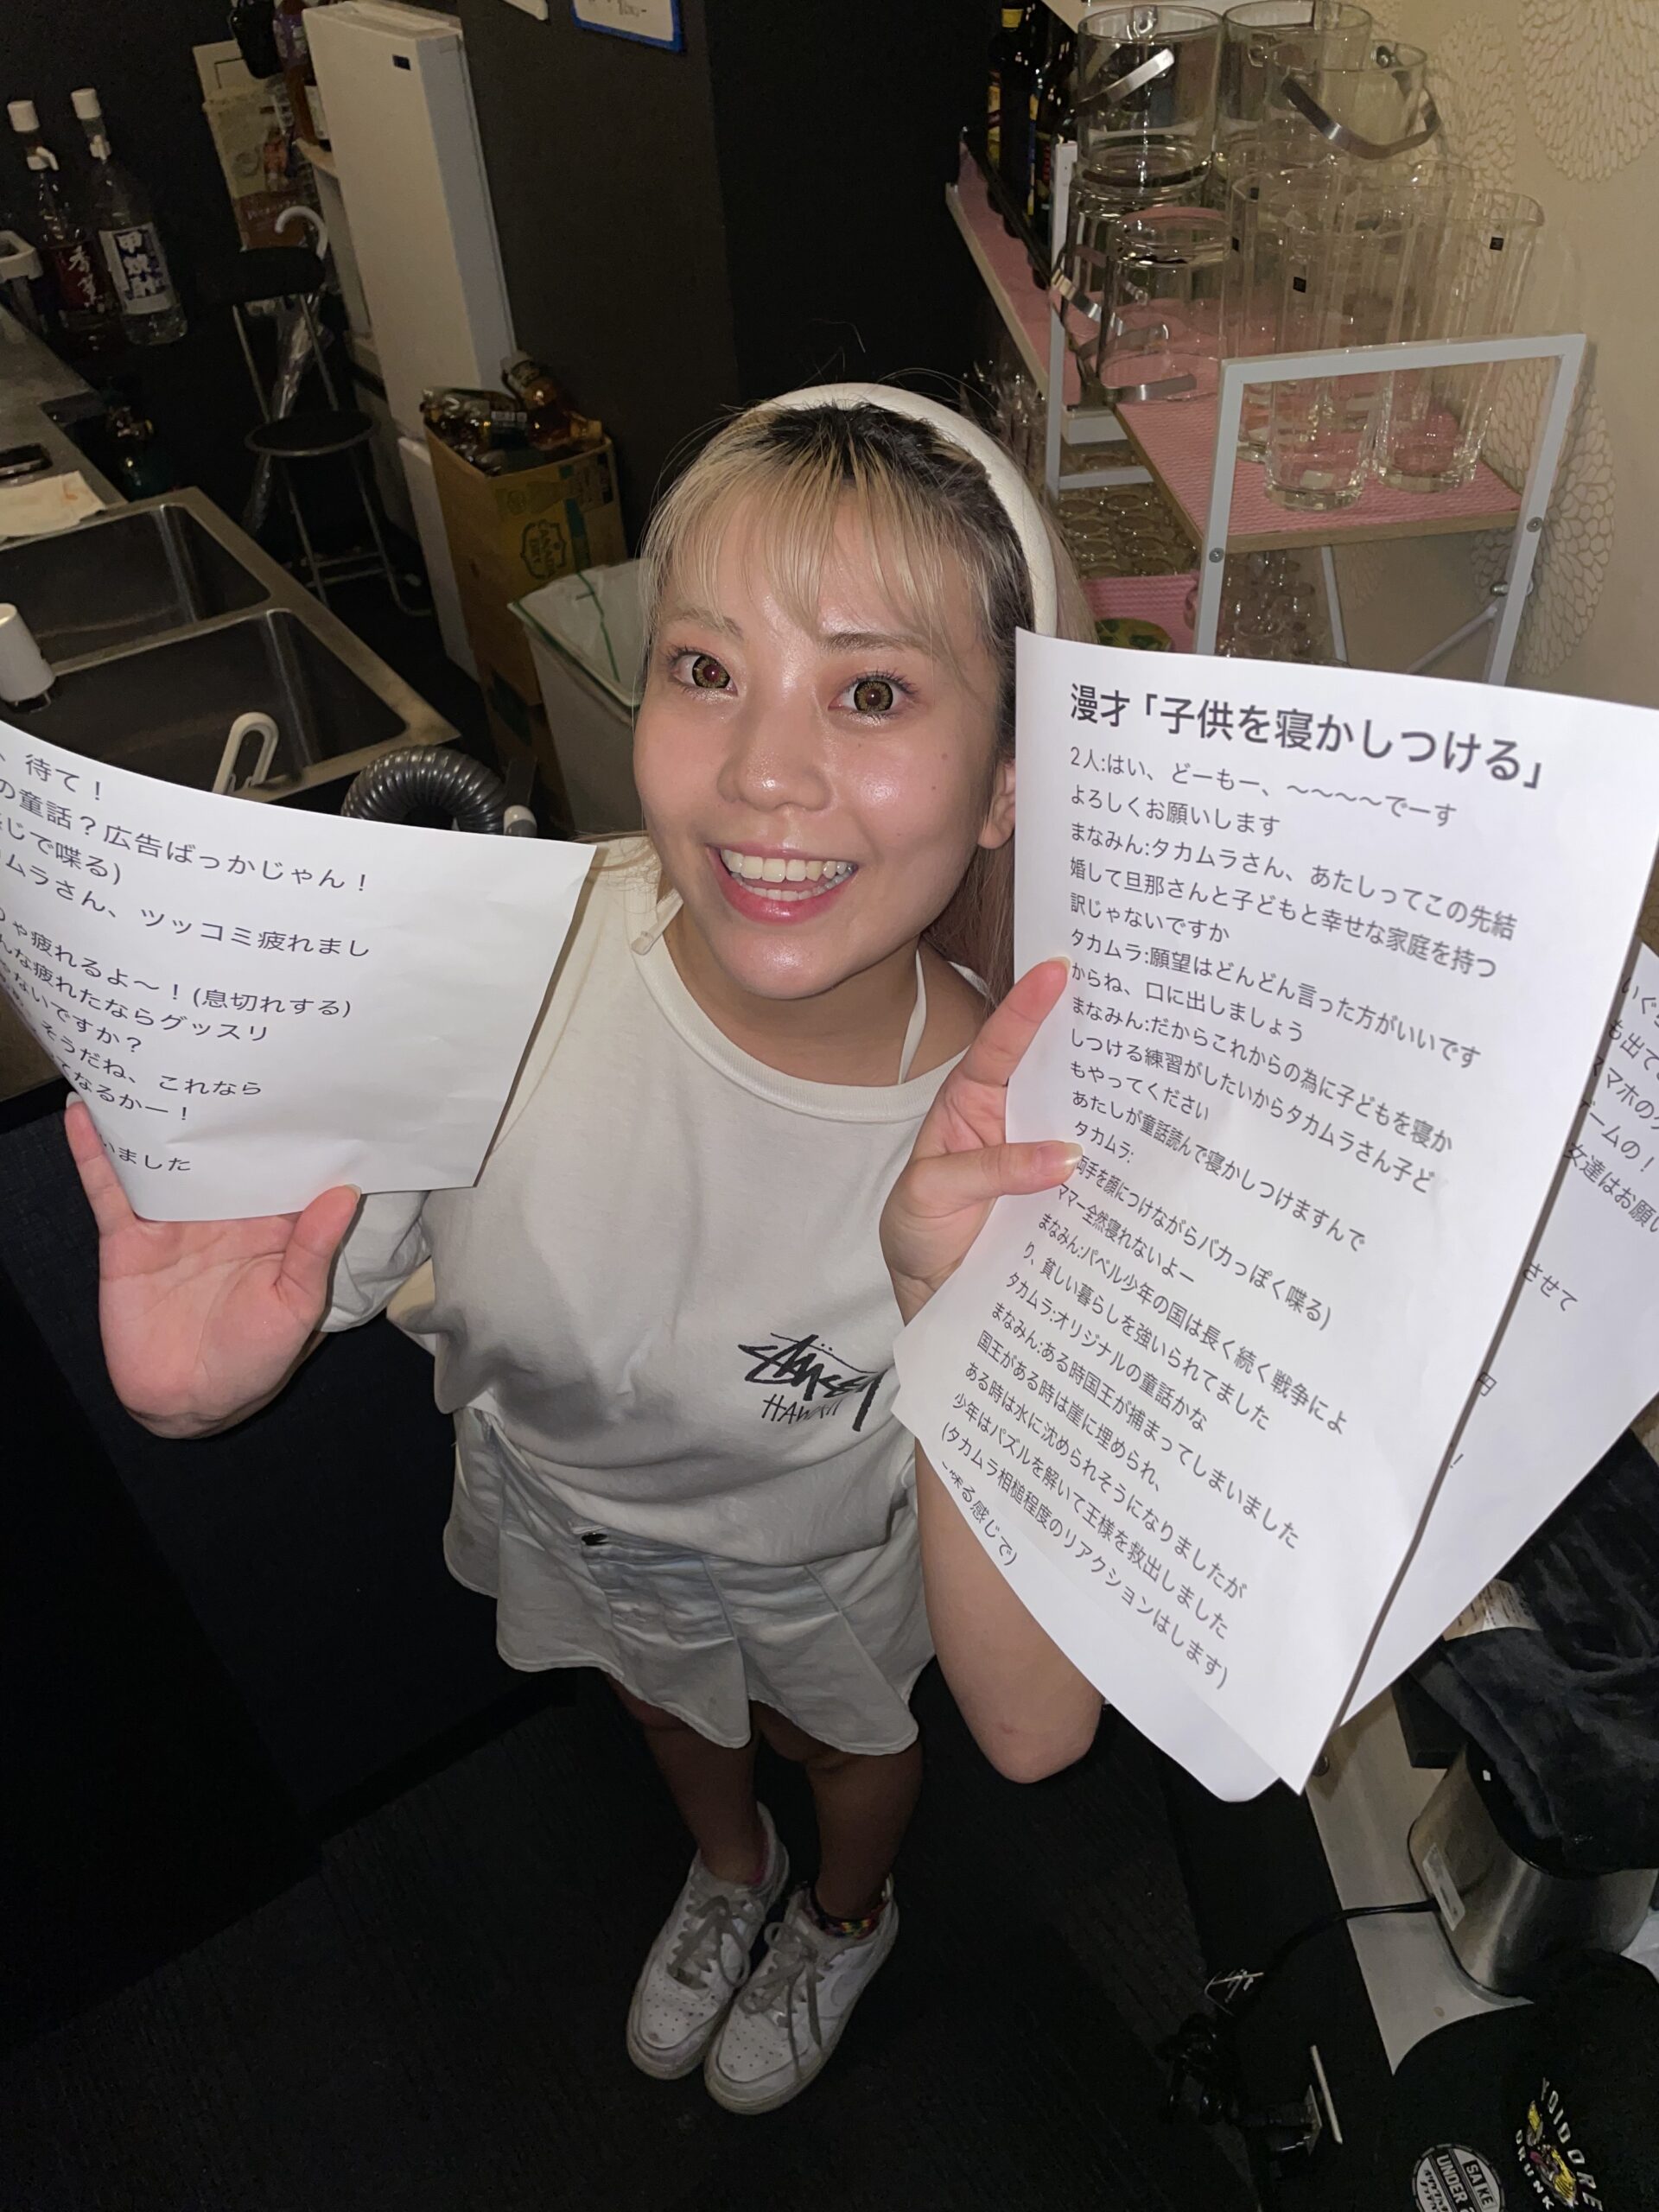 、待て！
の童話？広告ばっかじゃん！
じで喋る)
ムラさん、ツッコミ疲れまし
ゃ疲れるよ〜！(息切れする)
んな疲れたならグッスリ
ゃないですか？
そうだね、これなら
てなるかー！
いました
漫才「子供を寝かしつける」
2人:はい、どーもー、〜〜〜〜でーす
よろしくお願いします
まなみん:タカムラさん、あたしってこの先結
婚して旦那さんと子どもと幸せな家庭を持つ
訳じゃないですか
タカムラ:願望はどんどん言った方がいいです
からね、口に出しましょう
まなみん:だからこれからの為に子どもを寝か
しつける練習がしたいからタカムラさん子ど
もやってください
あたしが童話読んで寝かしつけますんで
タカムラ:
両手を顔につけながらバカっぽく喋る)
ママー全然寝れないよー
まなみん:パベル少年の国は長く続く戦争によ
り、貧しい暮らしを強いられてました
タカムラ:オリジナルの童話かな
まなみん:ある時国王が捕まってしまいました
国王がある時は崖に埋められ、
ある時は水に沈められそうになりましたが
少年はパズルを解いて王様を救出しました
(タカムラ相槌程度のリアクションはします)
喋る感じで)
いぐ
も出て
マホの
ゲームの！
女達はお願い
させて
円
！
STÜSSY
HAWAII
甲
SAKE
UNDER
YOIDORE
DRUNK